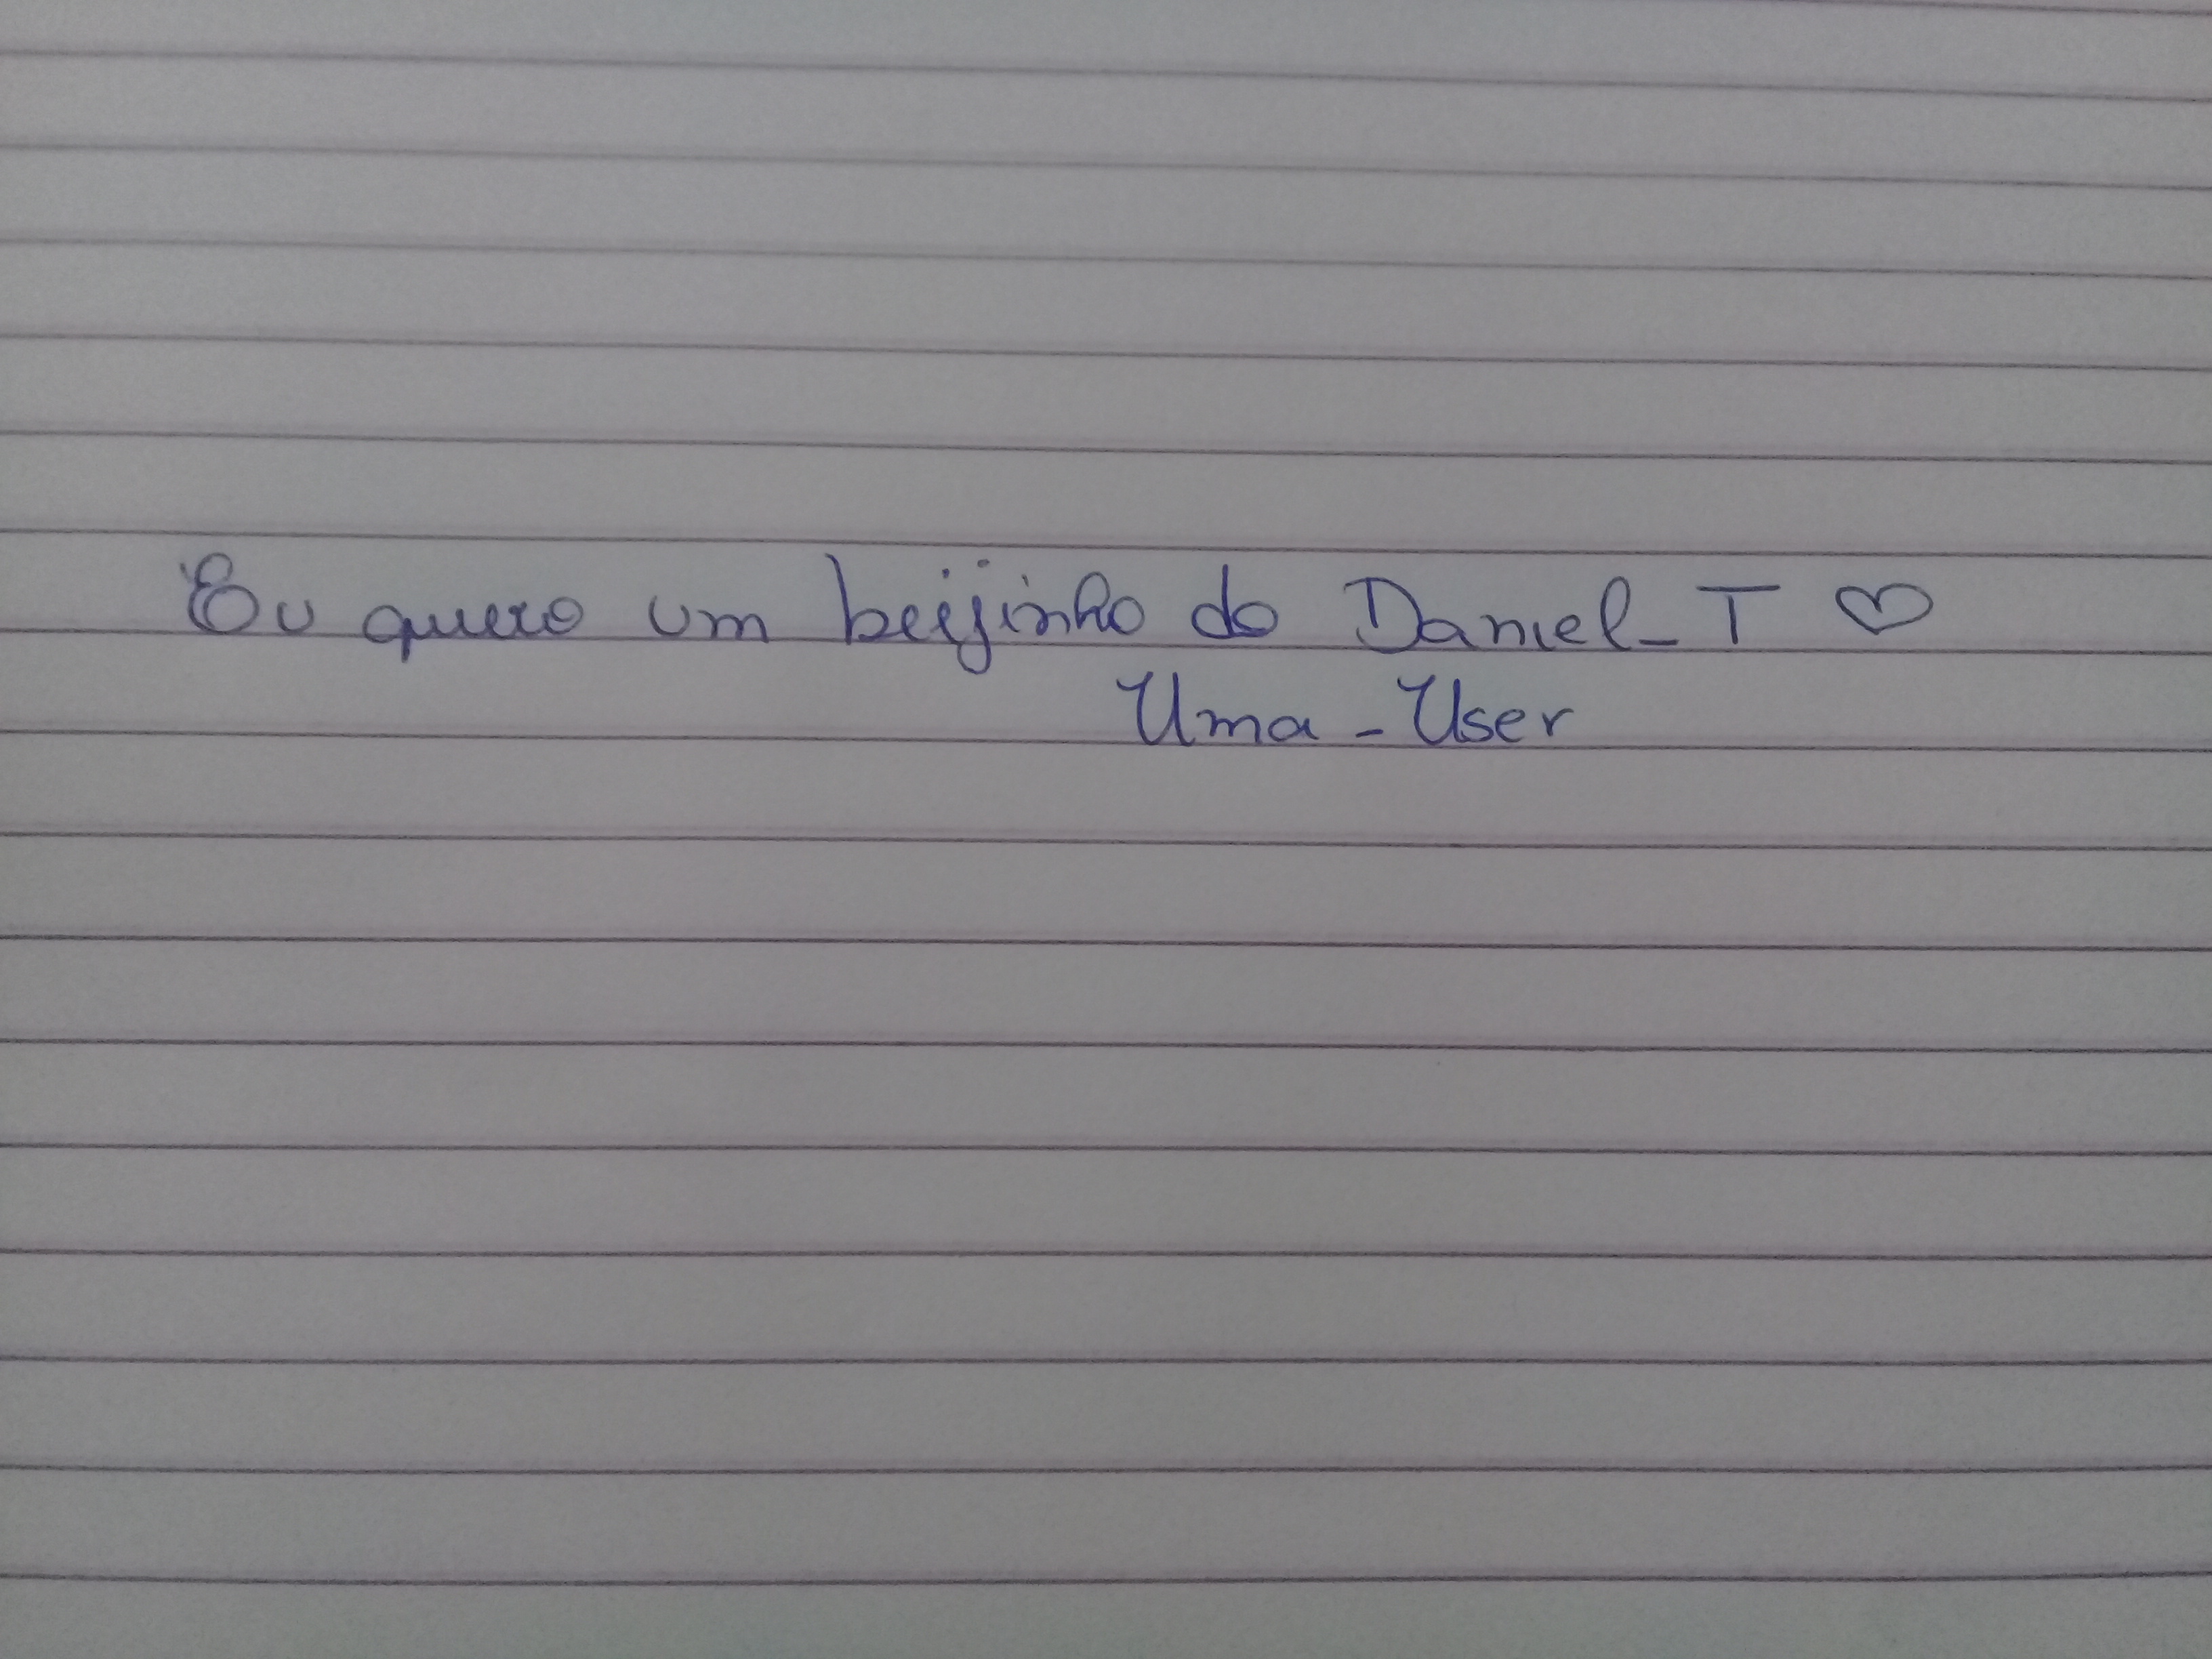 Eu quero um beijinho do Daniel_T ♡
Uma_User